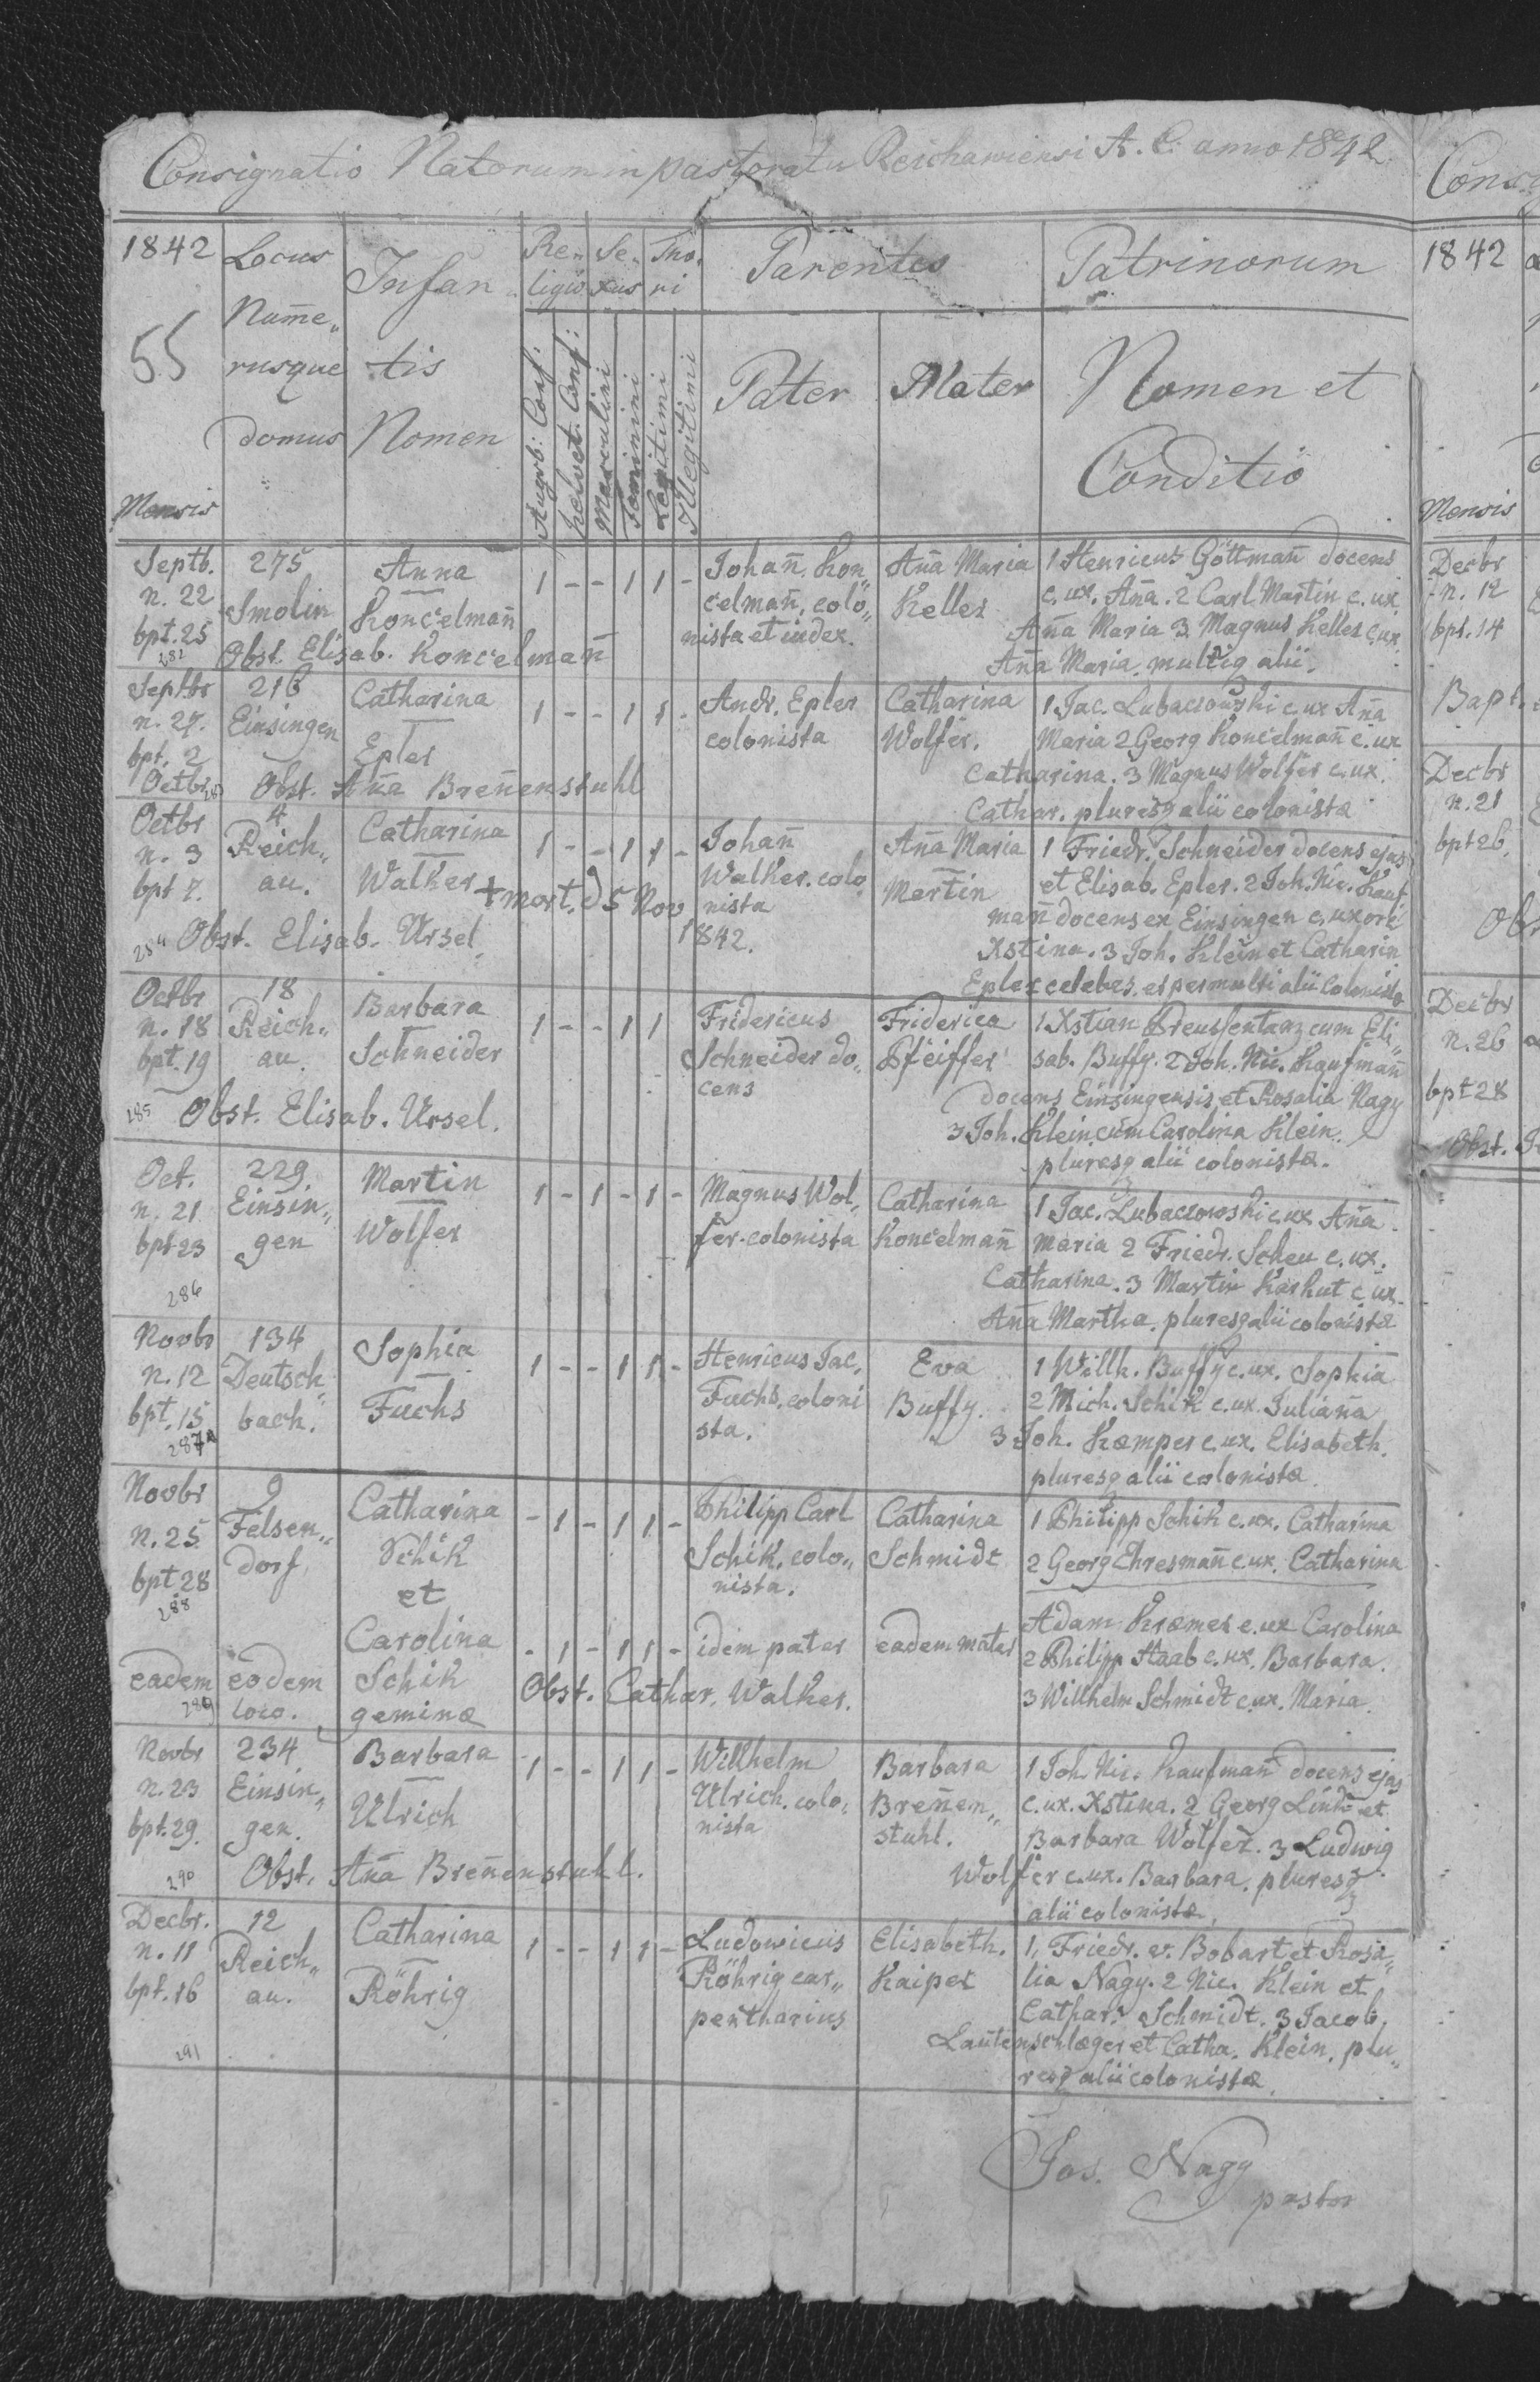 Consignatio Natorum in pastoratu Reichaviensi A. C. anno 1842
1842 Locus Infan Re„ Se„ Tho„ Parentes Patrinorum
ligio xus ri
Num̄e„
55 rusque tis Pater Mater Nomen et
domus Nomen
Conditio
Mensis Augsb: Conf: helvet. Conf: Masculini Feminini Legitimi Illegitimi
Septb. 275 Anna 1 - - 1 1 - Johan̄. Kon„ An̄a Maria 1 Henricus Göttman̄ docens
n. 22 Smolin Koncelman̄ celman̄, colo„ Keller c. ux. An̄a. 2 Carl Martin c. ux.
bpt. 25 nista et iudex. An̄a Maria 3 Magnus Keller c. ux
282 Obst. Elisab. Koncelman̄ An̄a Maria. multiq alii.
Septbr 216 Catharina 1 - - 1 1 - Andr. Epler Catharina 1 Jac. Lubaczowski c. ux An̄a
n. 27. Einsingen Epler colonista Wolfer. Maria 2 Georg Koncelman̄ c. ux
bpt. 2 Catharina. 3 Magnus Wolfer c. ux.
Octbr 283 Obst. An̄a Bren̄enstuhl Cathar. pluresq alii colonistæ
Octbr 4 Catharina 1 - - 1 1 - Johan̄ An̄a Maria 1 Friedr. Schneider docens ejus
n. 3 Reich„ Walker Walker. colo Martin et Elisab. Epler. 2 Joh. Nic. Kauf
bpt 7. au. + mort. d 5 Nov nista man̄ docens ex Einsingen c. uxore
284 Obst. Elisab. Ursel. 1842. Xstina. 3 Joh. Klein et Catharin
Epler celebes. et permulti alii colonistæ
Octbr 18 Barbara 1 - - 1 1 Fridericus Friderica 1 Xstian Dreussentanz cum Eli„
n. 18 Reich„ Schneider Schneider do„ Pfeiffer sab. Buffy. 2 Joh. Nic. Kaufman̄
bpt. 19 au. cens docens Einsingensis et Rosalia Nagy
285 Obst. Elisab. Ursel. 3 Joh. Klein cum Carolina Klein.
pluresq alii colonistæ.
Oct. 229 Martin 1 - 1 - 1 - Magnus Wol„ Catharina 1 Jac. Lubaczowski c. ux An̄a
n. 21 Einsin„ Wolfer fer. colonista Koncelman̄ Maria 2 Friedr. Scheu c. ux.
bpt 23 gen Catharina. 3 Martin Karhut c ux.
286 An̄a Martha. pluresq alii colonistæ
Novbr 134 Sophia 1 - - 1 1 - Henricus Jac. Eva 1 Willh. Buffy c. ux. Sophia
n. 12 Deutsch„ Fuchs Fuchs. coloni Buffy. 2 Mich. Schik c. ux. Julian̄a
bpt. 15 bach. sta. 3 Joh. Kæmper c. ux. Elisabeth.
287 pluresq alii colonistæ
Novbr 9 Catharina - 1 - 1 1 - Philipp Carl Catharina 1 Philipp Schik c. ux. Catharina
n. 25 Felsen„ Schik Schik. colo„ Schmidt 2 Georg Chresman̄ c. ux. Catharina
bpt 28 dorf et nista.
288 Adam Kræmer c. ux Carolina
Carolina - 1 - 1 1 - idem pater eadem mater 2 Philipp Staab c. ux. Barbara.
eadem eodem Schik Obst. Cathar. Walker. 3 Willhelm Schmidt c. ux. Maria
289 loco. geminæ
Novbr 234 Barbara 1 - - 1 1 - Willhelm Barbara 1 Joh. Nic. Kaufman̄ docens ejus
n. 23 Einsin„ Ulrich Ulrich. colo„ Bren̄en„ c. ux. Xstina. 2 Georg Lind et
bpt. 29. gen. nista stuhl. Barbara Wolfer. 3 Ludwig
290 Obst. An̄a Bren̄enstuhl. Wolfer c. ux. Barbara. pluresq
alii colonistæ.
Decbr. 12 Catharina 1 - - 1 1 - Ludowicus Elisabeth. 1, Friedr. v. Bobart et Rosa„
n. 11 Reich„ Röhrig Röhrig car„ Kaiper lia Nagy. 2 Nic. Klein et
bpt. 16 au. pentharius Cathar. Schmidt. 3 Jacob
291 Lautenschlæger et Catha. Klein. plu„
resq alii colonistæ.
Jos. Nagy
pastor
Cons
1842
Mensis
Decbr
n. 12
bpt. 14
Bapt.
Decbr
n. 21
bpt 26.
Decbr
n. 26
bpt 28
Obst.